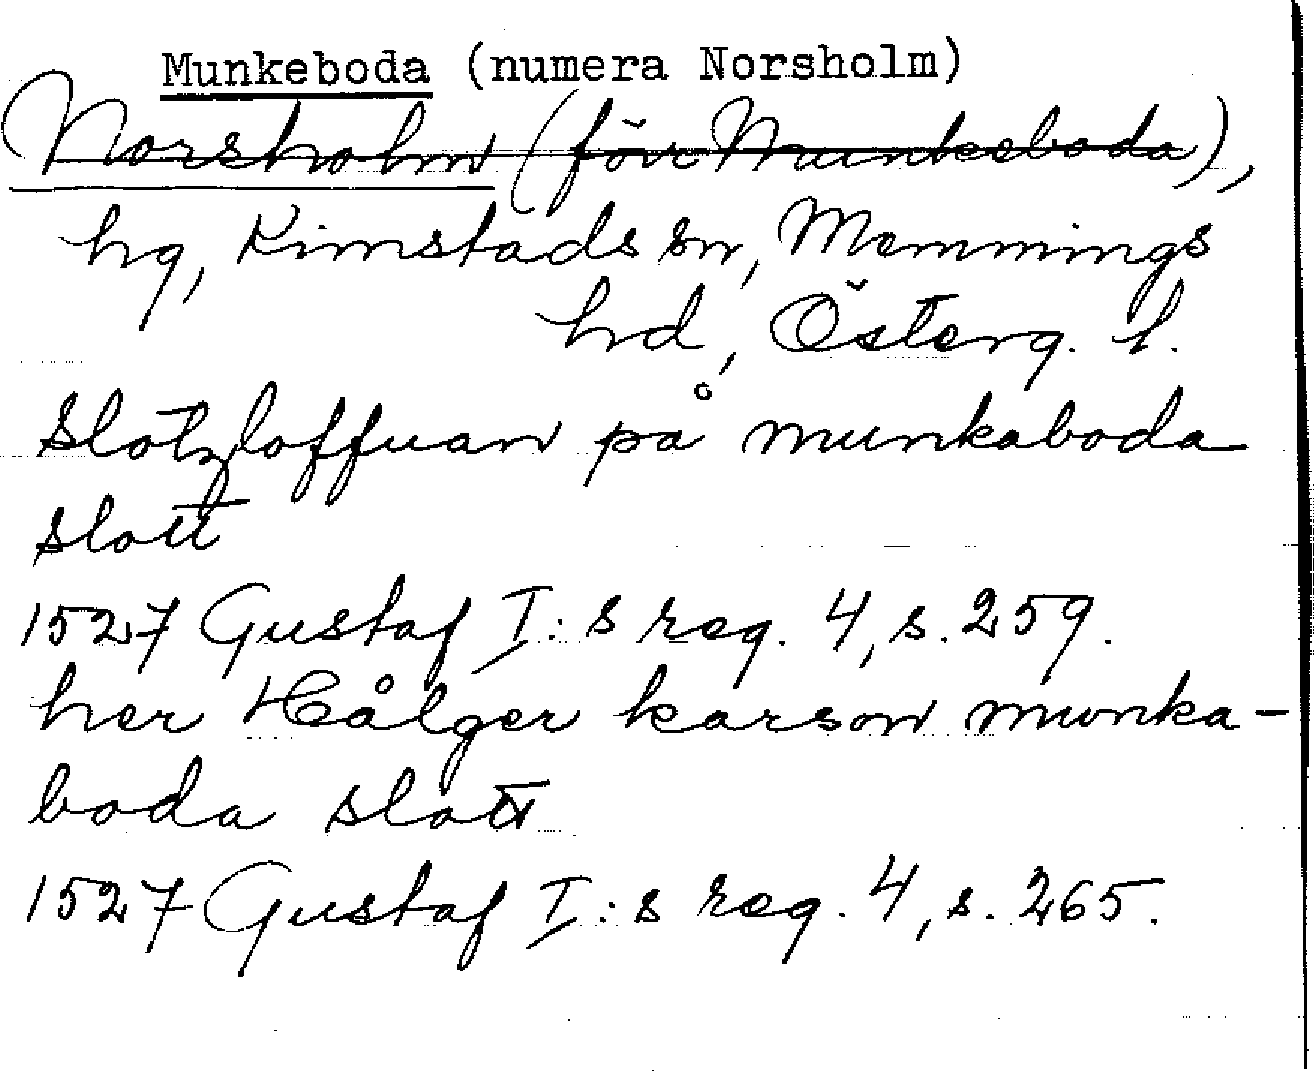 Munkeboda (numera Norsholm)
Norsholm (förr Munkeboda),
hg, Kimstads sn, Memmings
hd, Österg. l.
Slotzloffuan på munkaboda
slott
1527 Gustaf I:s reg. 4, s. 259.
her Hålger karson munka-
boda slott
1527 Gustaf I:s reg. 4, s. 265.